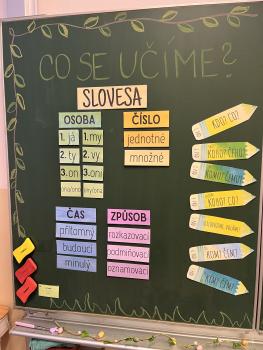 CO SE UČÍME?
SLOVESA
OSOBA
1. já
1. my
2. ty
2. vy
3. on
3. oni
ona/ono
ony/ona
ČÍSLO
jednotné
množné
ČAS
přítomný
budoucí
minulý
ZPŮSOB
rozkazovací
podmiňovací
oznamovací
KDO? CO?
KOHO? ČEHO?
KOMU? ČEMU?
KOHO? CO?
KOM? ČEM?
KÝM? ČÍM?